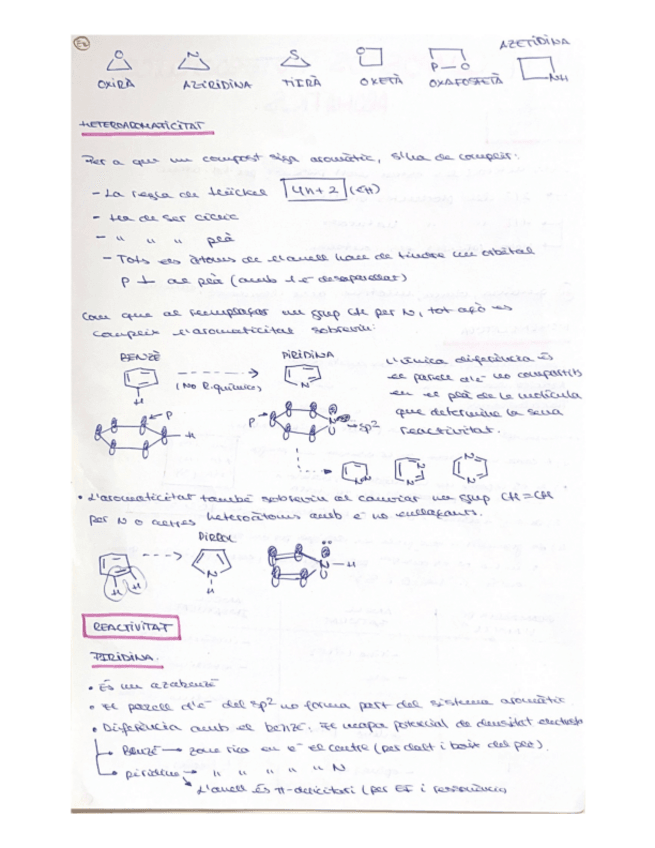 AZETIDINA
O N S O P O NH
OXIRÀ AZIRIDINA TIIRÀ OXETÀ OXAFOSFETÀ
HETEROAROMATICITAT
Per a que un compost siga aromàtic, s'ha de complir:
- La regla de Hückel 4n+2 (eπ)
- Ha de ser cíclic
- " " " plà
- Tots els àtoms de l'anell han de tindre un orbital
p ⊥ al plà (amb 1 e⁻ desaparellat)
Com que al reemplaçar un grup CH per N, tot açò es
compleix l'aromaticitat sobreviu:
BENZÈ PIRIDINA
(NO R.química)
L'única diferència és
el parell d'e⁻ no compartits
en el plà de la molècula
que determina la seua
reactivitat.
H N
P H P N sp²
• L'aromaticitat també sobreviu al canviar un grup CH=CH
per N o altres heteroàtoms amb e⁻ no enllaçants.
PIRROL
H H N H N - H
REACTIVITAT
PIRIDINA.
• És un azabenzè
• El parell d'e⁻ del sp² no forma part del sistema aromàtic
• Diferència amb el benzè. El mapa potencial de densitat
Benzè → zona rica en e⁻ el centre (per dalt i baix del plà).
piridina → " " " " " N
L'anell és π-deficitari (per EI i ressonància